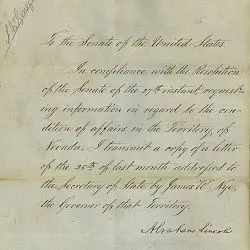 To the Senate of the United States.
In compliance with the Resolution
of the Senate of the 27th instant request-
ing information in regard to the con-
dition of affairs in the Territory of
Nevada, I transmit a copy of a letter
of the 25th of last month addressed to
the Secretary of State by James W. Nye,
the Governor of that Territory.
Abraham Lincoln